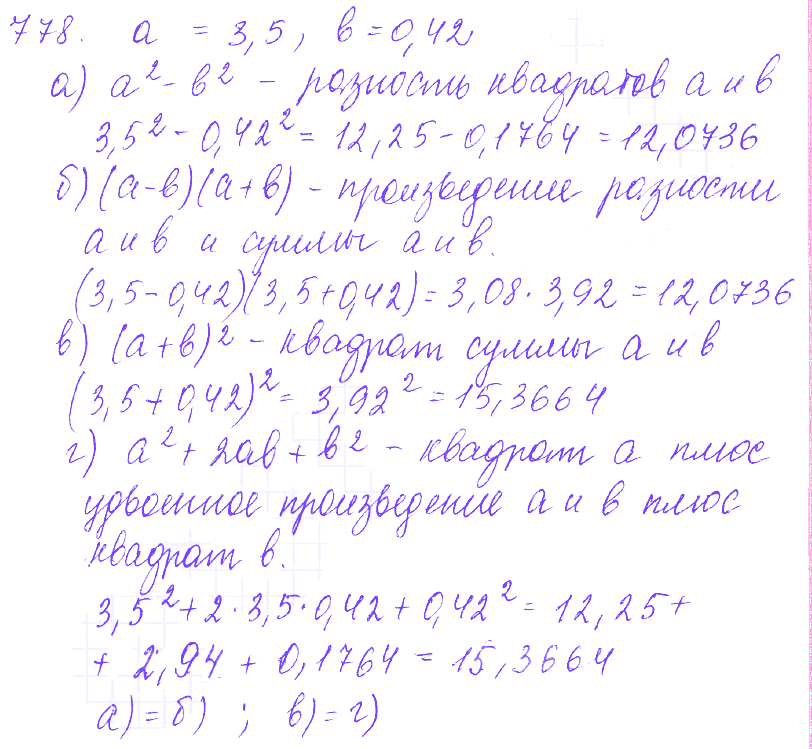 778. a = 3,5, в = 0,42
а) a² - в² - разность квадратов а и в
3,5² - 0,42² = 12,25 - 0,1764 = 12,0736
б) (а-в)(а+в) - произведение разности
а и в и суммы а и в.
(3,5-0,42)(3,5+0,42) = 3,08·3,92 = 12,0736
в) (а+в)² - квадрат суммы а и в
(3,5+0,42)² = 3,92² = 15,3664
г) а² + 2ав + в² - квадрат а плюс
удвоенное произведение а и в плюс
квадрат в.
3,5² + 2·3,5·0,42 + 0,42² = 12,25 +
+ 2,94 + 0,1764 = 15,3664
а) = б) ; в) = г)